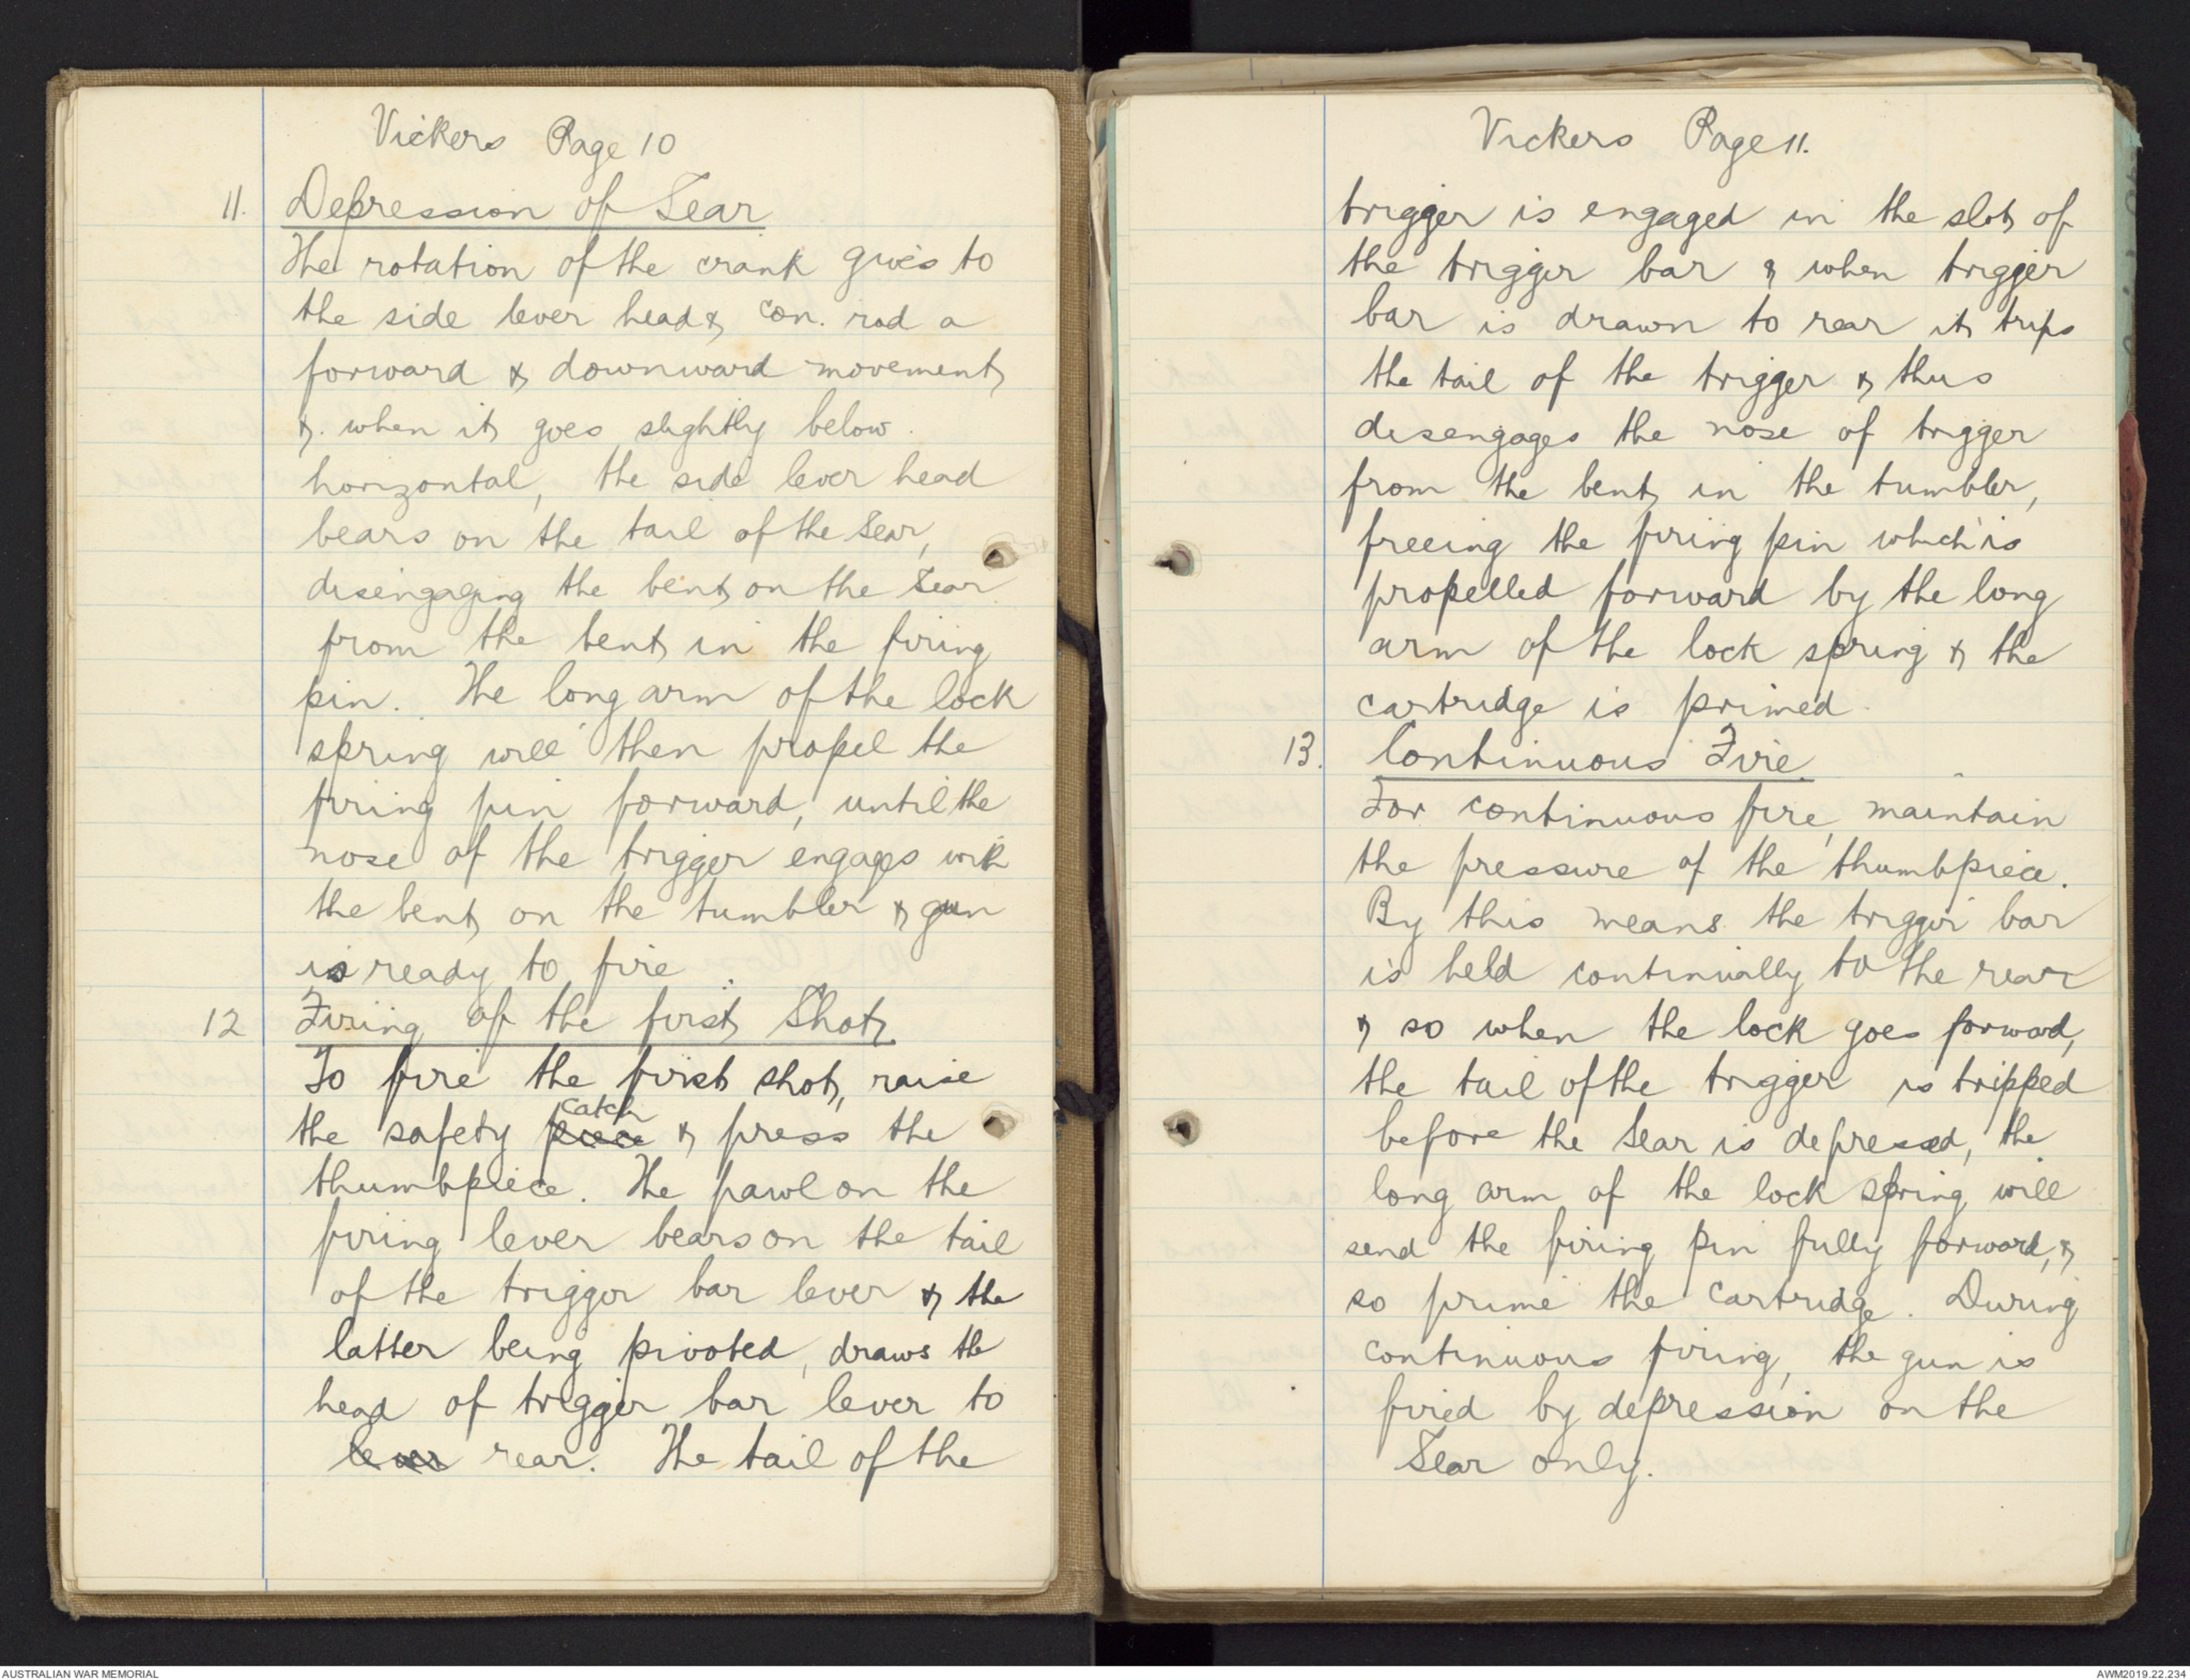 Vickers Page 10
11. Depression of Sear
The rotation of the crank gives to
the side lever head & con. rod a
forward & downward movement
&. when it goes slightly below
horizontal, the side lever head
bears on the tail of the Sear,
disengaging the bent on the Sear
from the bent in the firing
pin. The long arm of the lock
spring will then propel the
firing pin forward, until the
nose of the trigger engages with
the bent on the tumbler & gun
is ready to fire
12 Firing of the first Shot.
To fire the first shot, raise
catch
the safety piece & press the
thumbpiece. The pawl on the
firing lever bears on the tail
of the trigger bar lever & the
latter being pivoted, draws the
head of trigger bar lever to
lever rear. The tail of the
Vickers Page 11.
trigger is engaged in the slot of
the trigger bar & when trigger
bar is drawn to rear it trips
the tail of the trigger & thus
disengages the nose of trigger
from the bent in the tumbler,
freeing the firing pin which is
propelled forward by the long
arm of the lock spring & the
cartridge is primed
13. Continuous Fire.
For continuous fire, maintain
the pressure of the thumbpiece.
By this means the trigger bar
is held continually to the rear
& so when the lock goes forward,
the tail of the trigger is tripped
before the Sear is depressed, the
long arm of the lock spring will
send the firing pin fully forward, &
so prime the cartridge. During
continuous firing, the gun is
fired by depression on the
Sear only.
AUSTRALIAN WAR MEMORIAL
AWM2019.22.234